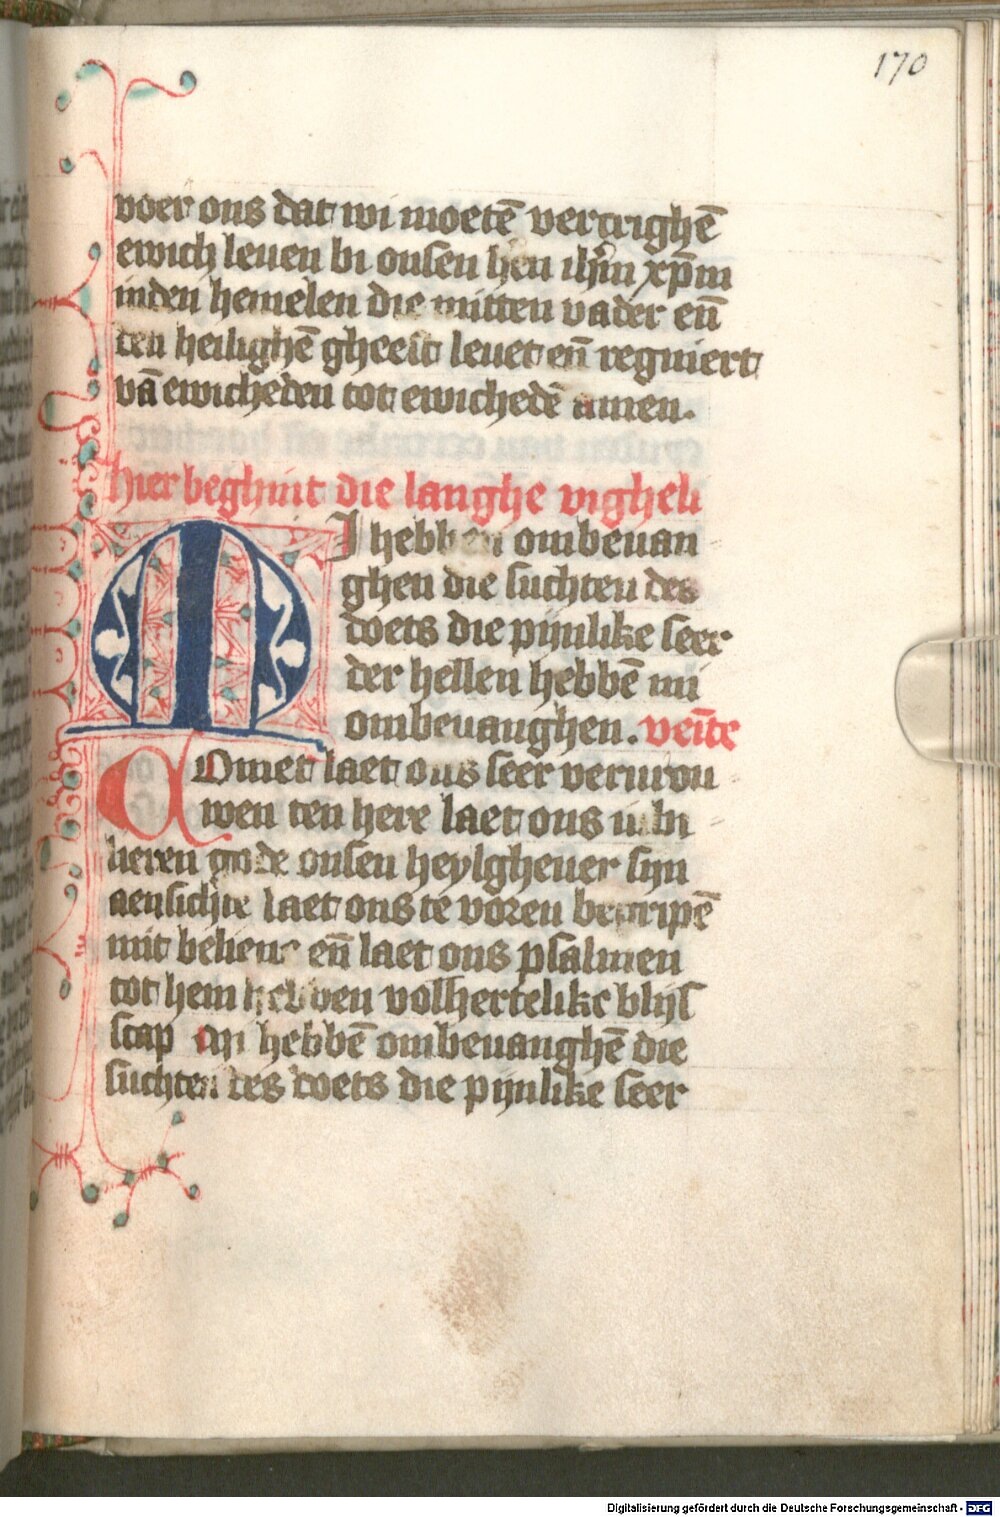 170
voer ons dat wi moetē vercrighē
ewich leuen bi onsen hēn ihm̄ xpm̄
inden hemelen die mitten vader eñ
den heilighē gheest leuet eñ regniert
vā ewicheden tot ewichedē amen.
hier beghint die langhe vigheli
MI hebben ombeuan
ghen die suchten des
doets die pijnlike seer
der hellen hebbē mi
ombeuanghen. venīte
COmet laet ons seer vervrou
wen den here laet ons iubi
lieren gode onsen heylgheuer sijn
aensichte laet ons te voren begripē
mit belien eñ laet ons psalmen
tot hem hebben volhertelike blijs
scap Mi hebbē ombeuanghē die
suchten des doets die pijnlike seer
Digitalisierung gefördert durch die Deutsche Forschungsgemeinschaft - DFG